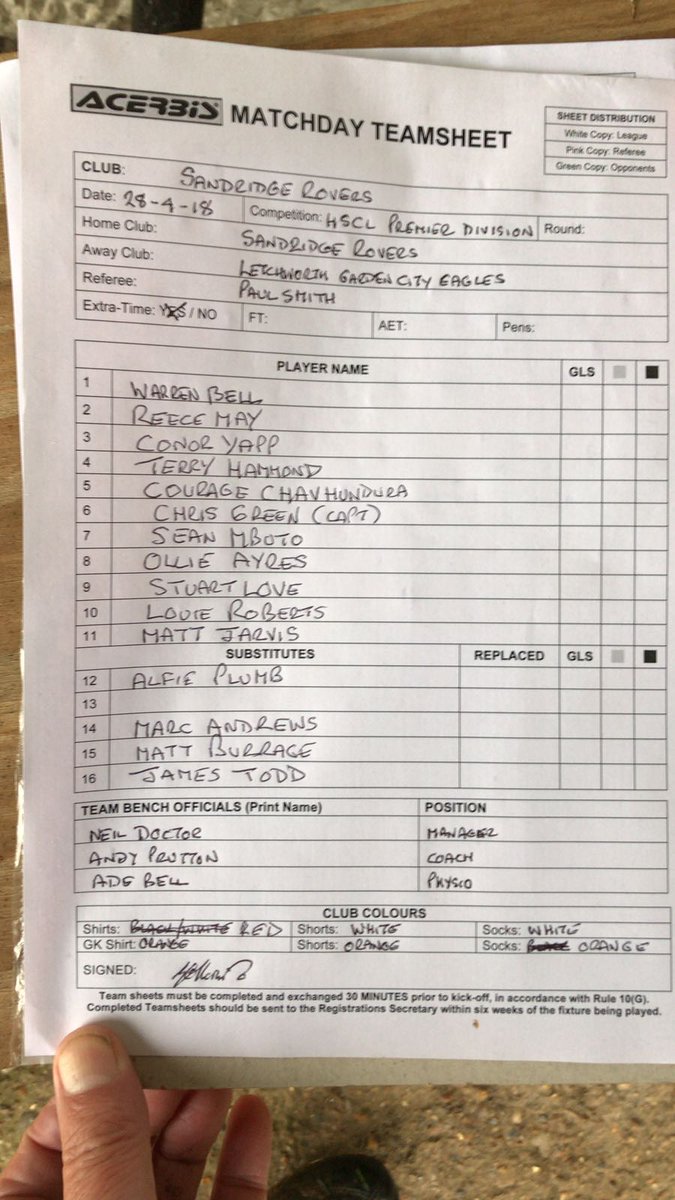 ACERBIS MATCHDAY TEAMSHEET
SHEET DISTRIBUTION
White Copy: League
Pink Copy: Referee
Green Copy: Opponents
CLUB: SANDRIDGE ROVERS
Date: 28-4-18 Competition: HSCL PREMIER DIVISION Round:
Home Club: SANDRIDGE ROVERS
Away Club: LETCHWORTH GARDEN CITY EAGLES
Referee: PAUL SMITH
Extra-Time: YES / NO FT: AET: Pens:
PLAYER NAME GLS
1 WARREN BELL
2 REECE MAY
3 CONOR YAPP
4 TERRY HAMMOND
5 COURAGE CHAVHUNDURA
6 CHRIS GREEN (CAPT)
7 SEAN MBOTO
8 OLLIE AYRES
9 STUART LOVE
10 LOUIE ROBERTS
11 MATT JARVIS
SUBSTITUTES REPLACED GLS
12 ALFIE PLUMB
13
14 MARC ANDREWS
15 MATT BURRAGE
16 JAMES TODD
TEAM BENCH OFFICIALS (Print Name) POSITION
NEIL DOCTOR MANAGER
ANDY PRUTTON COACH
ADE BELL PHYSIO
CLUB COLOURS
Shirts: BLACK/WHITE RED Shorts: WHITE Socks: WHITE
GK Shirt: ORANGE Shorts: ORANGE Socks: BLACK ORANGE
SIGNED:
Team sheets must be completed and exchanged 30 MINUTES prior to kick-off, in accordance with Rule 10(G).
Completed Teamsheets should be sent to the Registrations Secretary within six weeks of the fixture being played.